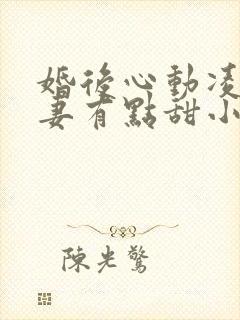 婚後心動凌
妻有點甜小
陳光驚